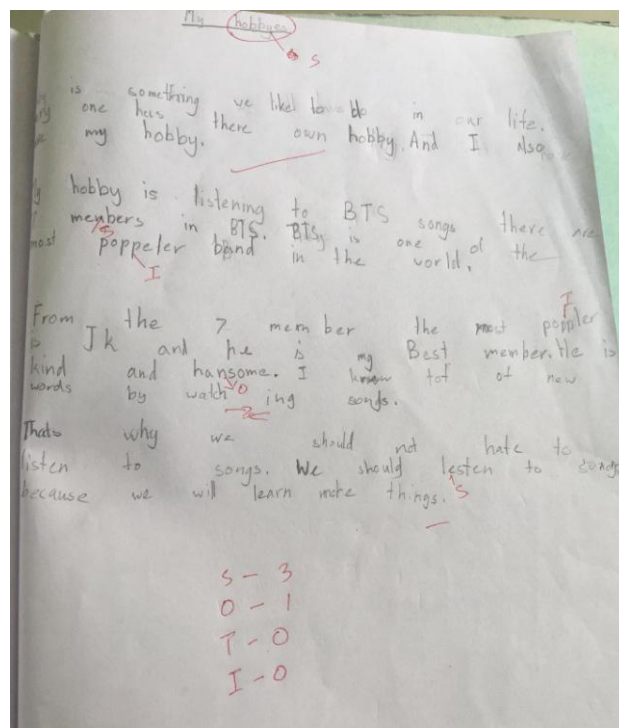 My hobbyes
s
is something we like to do in our life.
one has there own hobby. And I also
my hobby.
hobby is listening to BTS songs there are
members in BTS. BTS is one of the
s
most poppeler band in the world.
I
I
From the 7 member the most poppler
is Jk and he is my Best member. He is
kind and hansome. I know lot of new
words by watch ing songs.
O
Thats why we should not hate to
listen to songs. We should lesten to songs
because we will learn more things.
S
S - 3
O - 1
T - 0
I - 0